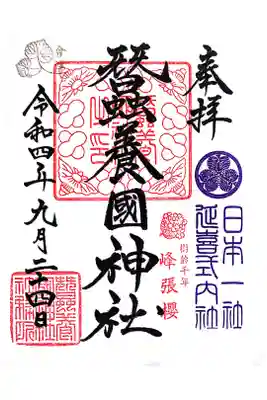 奉拝
日本一社
延喜式内社
樹齢千年
峰張櫻
蠶養國神社
令和四年九月二十四日